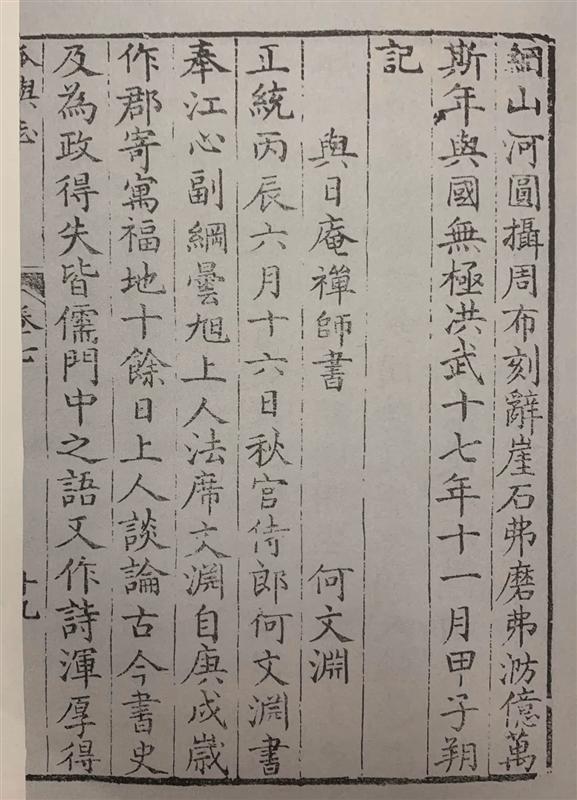 網山河圓攝周布刻辭崖石弗磨弗泐億萬
斯年與國無極洪武十七年十一月甲子朔
記
與日庵禪師書 何文淵
正統丙辰六月十六日秋官侍郎何文淵書
奉江心副綱曇旭上人法席文淵自庚戌歲
作郡寄寓福地十餘日上人談論古今書史
及為政得失皆儒門中之語又作詩渾厚得
卷七
十九